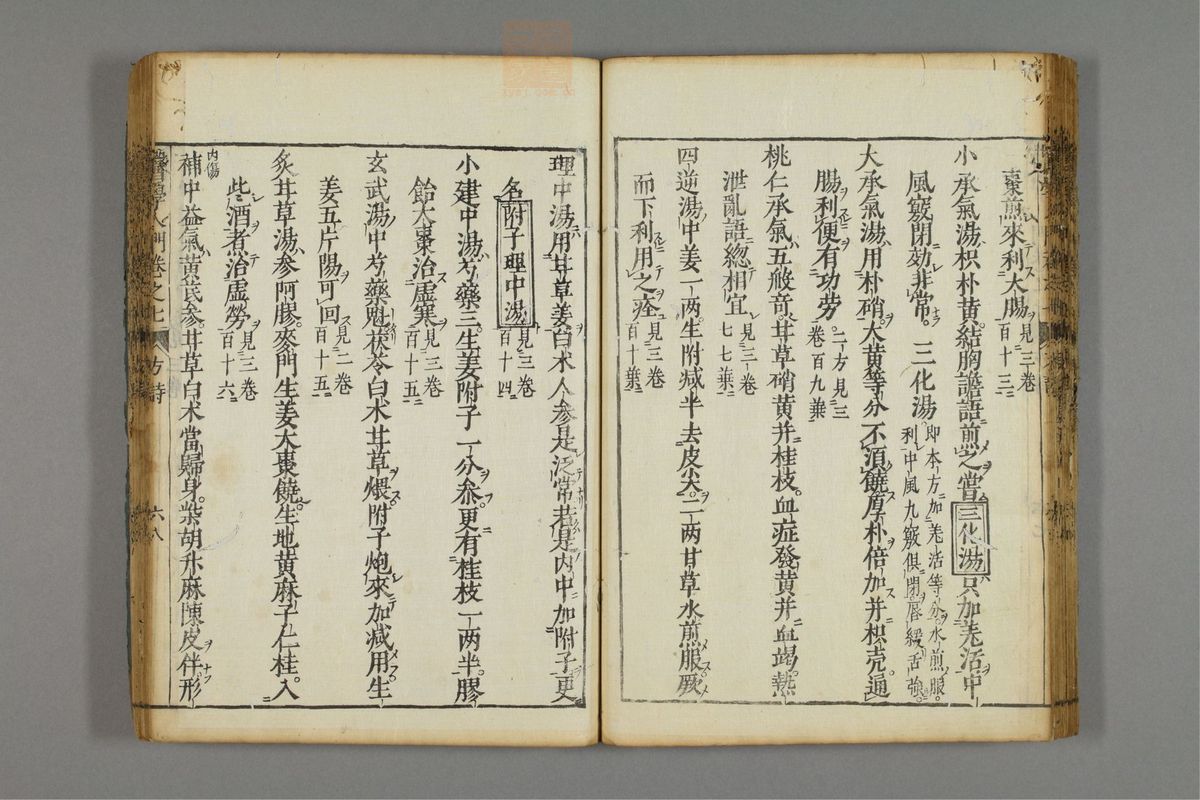 棗煎來利大腸 見三卷百十三
小承氣湯枳朴黃結胸譫語煎之嘗三化湯只加羌活中
風竅閉効非常 三化湯 即本方加羌活等分水煎服利中風九竅俱閉唇緩舌強
大承氣湯用朴硝大黃等分不須饒厚朴倍加并枳壳通
腸利便有功勞 二方見三卷百九葉
桃仁承氣五般竒甘草硝黃并桂枝血症發黃并血竭熱
泄亂語総相宜 見三卷七七葉
四逆湯中姜一兩生附减半去皮尖二兩甘草水煎服厥
而下利用之痊 見三卷百十葉
理中湯用甘草姜白朮人參是泛常若是内中加附子更
名附子理中湯 見三卷百十四
小建中湯芍藥三生姜附子一分叅更有桂枝一兩半膠
飴大棗治虛寒 見三卷百十五
玄武湯中芍藥魁茯苓白朮甘草煨附子炮來加减用生
姜五片陽可回 見二卷百十五
炙甘草湯參阿膠麥門生姜大棗饒生地黃麻子仁桂入
些酒煮治虛勞 見三卷百十六
内傷
補中益氣黃芪參甘草白朮當歸身柴胡升麻陳皮伴形
醫學入門卷之七 方詩 六八